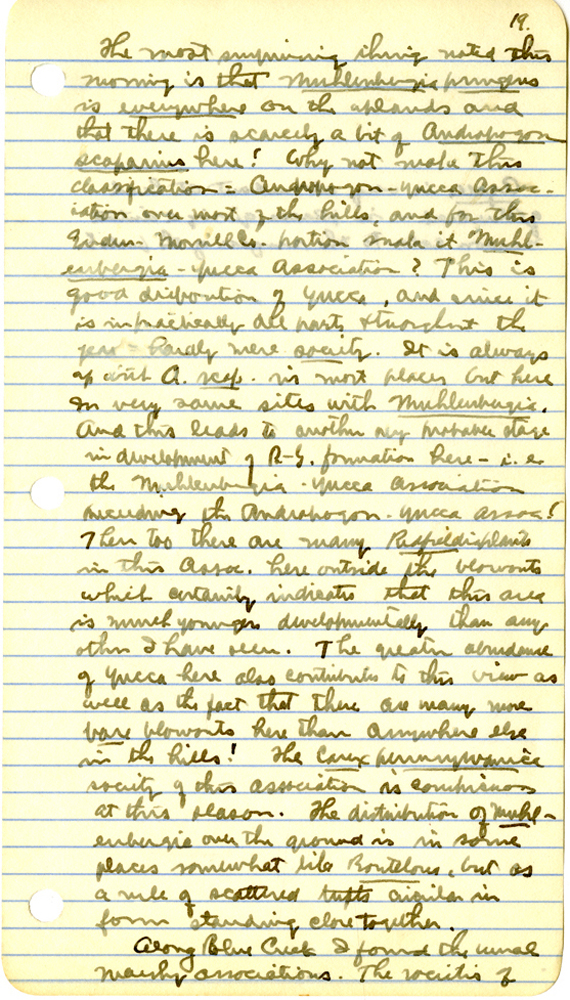 19.
The most surprising thing noted this
morning is that Muhlenbergia pungens
is everywhere on the uplands and
that there is scarcely a bit of Andropogon
scoparius here! Why not make this
classification = Andropogon-Yucca Assoc-
iation over most of the hills, and for this
Garden-Morrill Co. portion make it Muhl-
enbergia-Yucca Association? This is
good disposition of Yucca, and since it
is in practically all parts & throughout the
year hardly mere society. It is always
up with A. scop. in most places but here
in very same sites with Muhlenbergia.
And this leads to another very probable stage
in development of R-G. formation here - i.e.
the Muhlenbergia-Yucca Association
preceding the Andropogon-Yucca Assoc!
Then too there are many Redfieldia plants
in this Assoc. here outside the blowouts
which certainly indicates that this area
is much younger developmentally than any
other I have seen. The greater abundance
of Yucca here also contributes to this view as
well as the fact that there are many more
bare blowouts here than anywhere else
in the hills! The Carex pennsylvanica
society of this association is conspicuous
at this season. The distribution of Muhl-
enbergia over the ground is in some
places somewhat like Bouteloua, but as
a rule of scattered tufts circular in
form standing close together.
Along Blue Creek I found the usual
marshy associations. The societies of